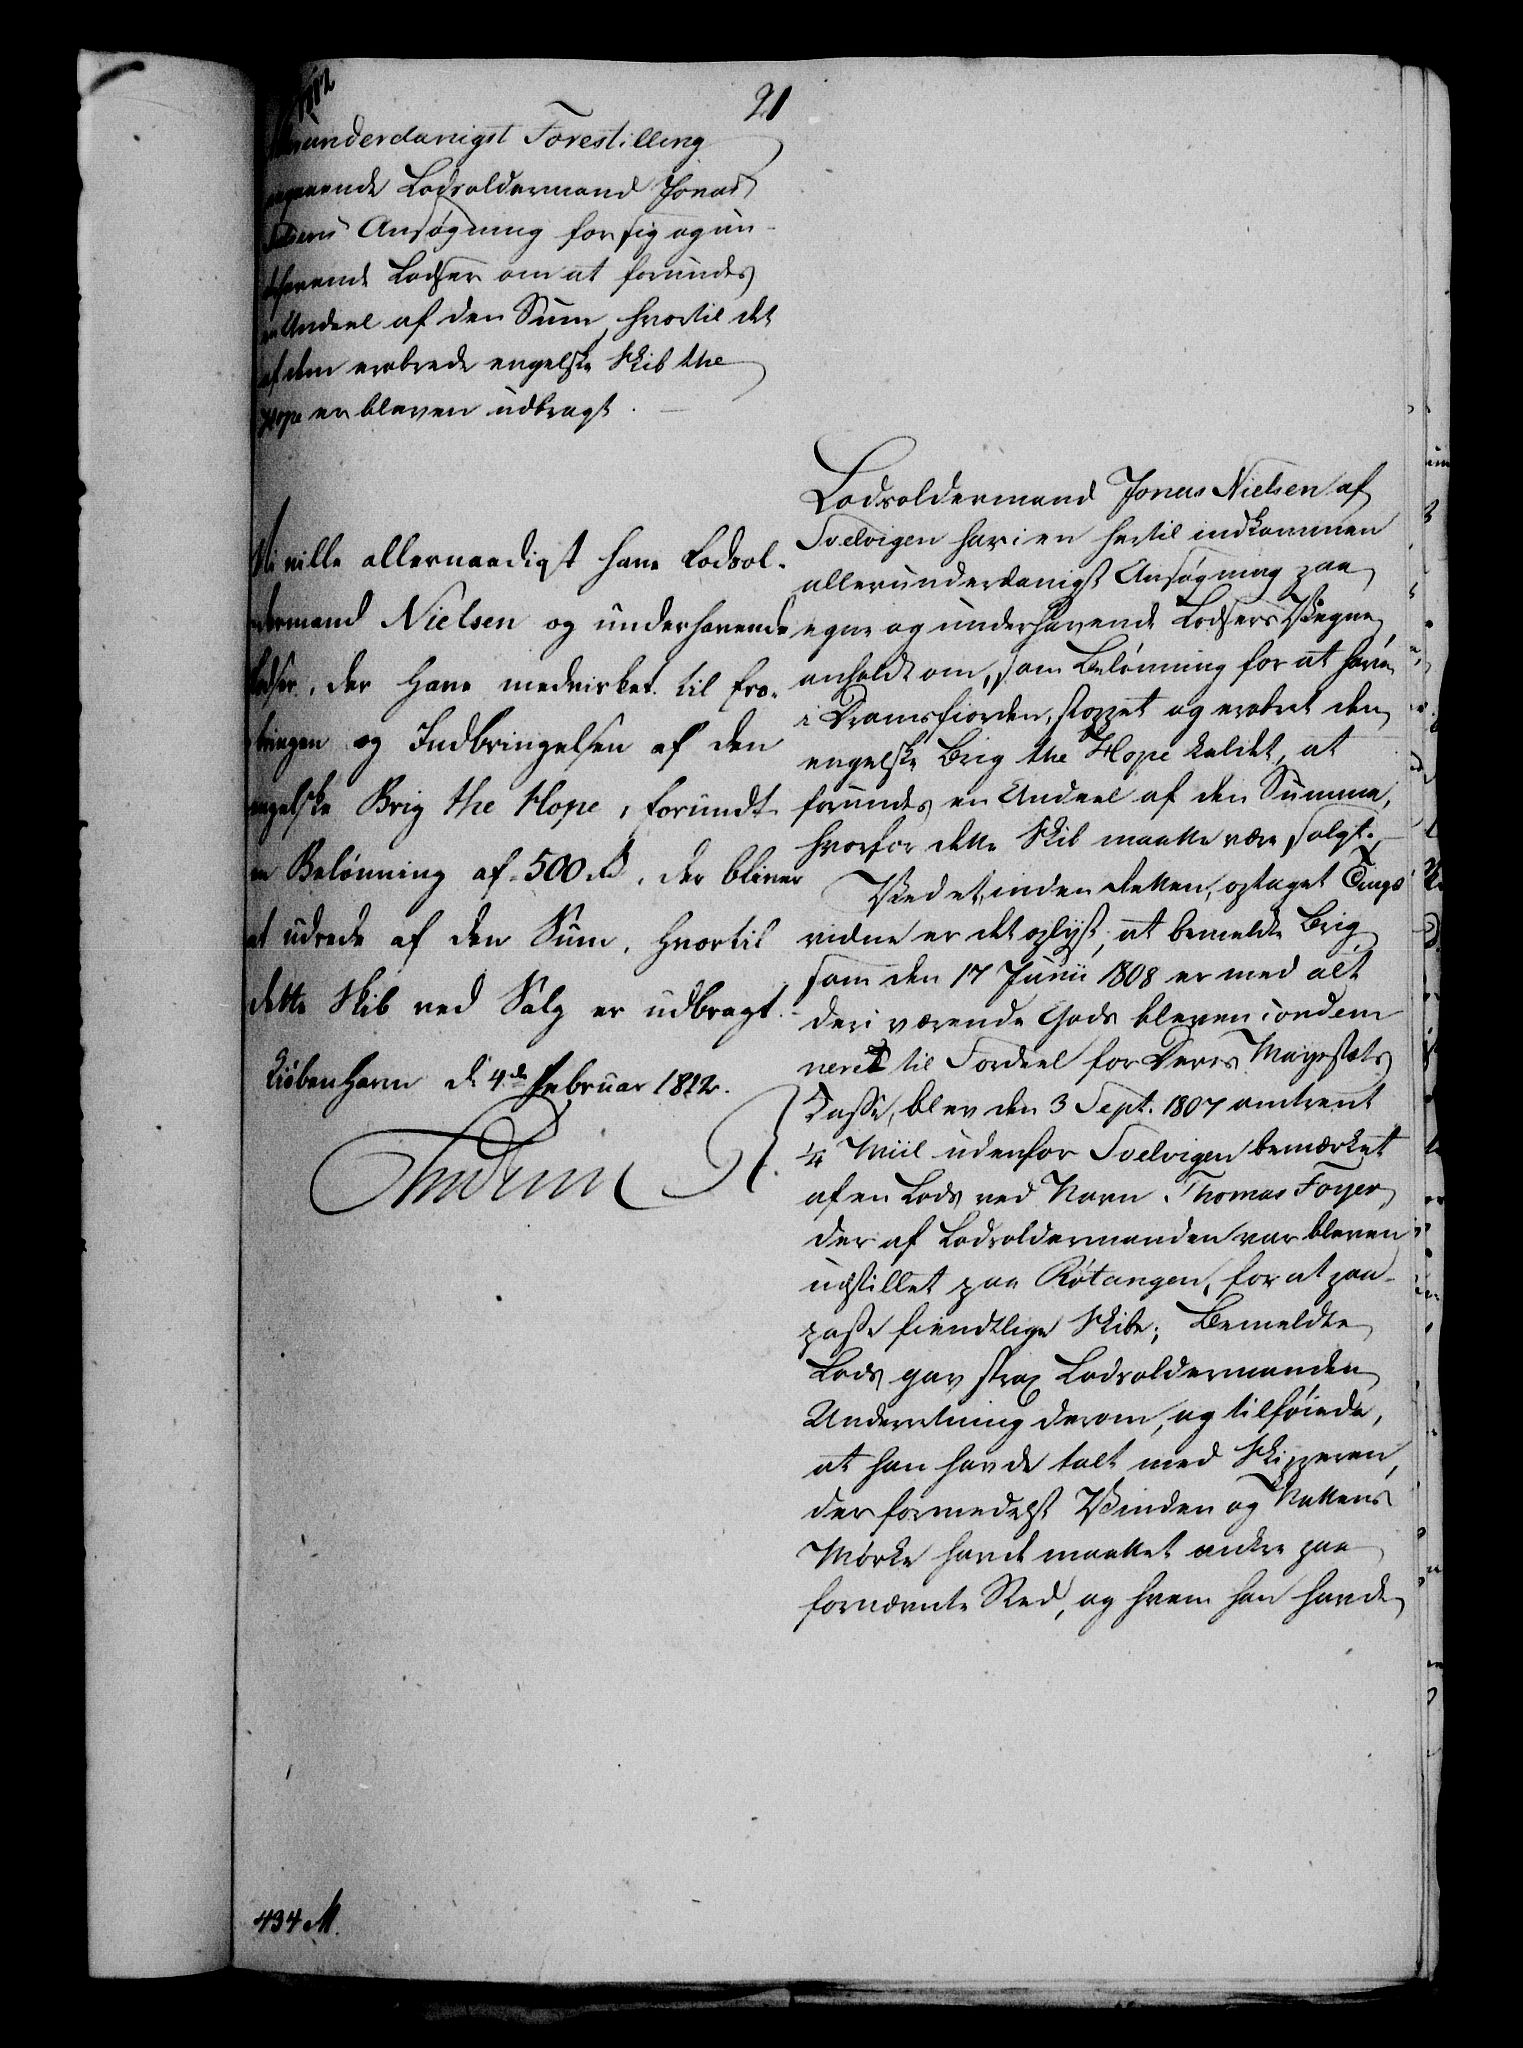 1812
21
allerunderdanigst Forestilling
angaaende Lodsoldermand Jonas
Nielsens Ansøgning for sig og un-
derhavende Lodser om at forundes
en Andeel af den Sum, hvortil det
af dem erobrede engelske Skib the
Hope er bleven udbragt.
Vi ville allernaadigst have Lodsol-
dermand Nielsen og underhavende
Lodser, der have medvirket til Ero-
bringen og Indbringelsen af den
engelske Brig the Hope, forundt
en Belønning af 500 rd, der bliver
at udrede af den Sum, hvortil
dette Skib ved Salg er udbragt.
Kiøbenhavn d. 4de Februar 1812.
Frederik R.
Lodsoldermand Jonas Nielsen af
Svelvigen har i en hertil indkommen
allerunderdanigst Ansøgning paa
egne og underhavende Lodsers Vegne
anholdt om, som Belønning for at have
i Dramsfiorden, stoppet og erobret den
engelske Brig the Hope kaldet, at
forundes en Andeel af den Summa,
hvorfor dette Skib maatte være solgt.
Ved et, inden Retten, optaget Tings
vidne er det oplyst, at bemeldte Brig
som den 17 Junii 1808 er med alt
deri værende Gods bleven condem
neret til Fordeel for Deres Majestæts
Casse, blev den 3 Sept. 1807 omtrent
1/4 Miil udenfor Svelvigen bemærket
af en Lods ved Navn Thomas Foyer,
der af Lodsoldermanden var bleven
udstillet paa Røtangen, for at paa-
passe fiendtlige Skibe; Bemeldte
Lods gav strax Lodsoldermanden
Underretning derom, og tilføiede,
at han havde talt med Skipperen,
der formedelst Vinden og Nattens
Mørke havde maattet ankre paa
fornævnte Red, og hvem han havde
434 M.